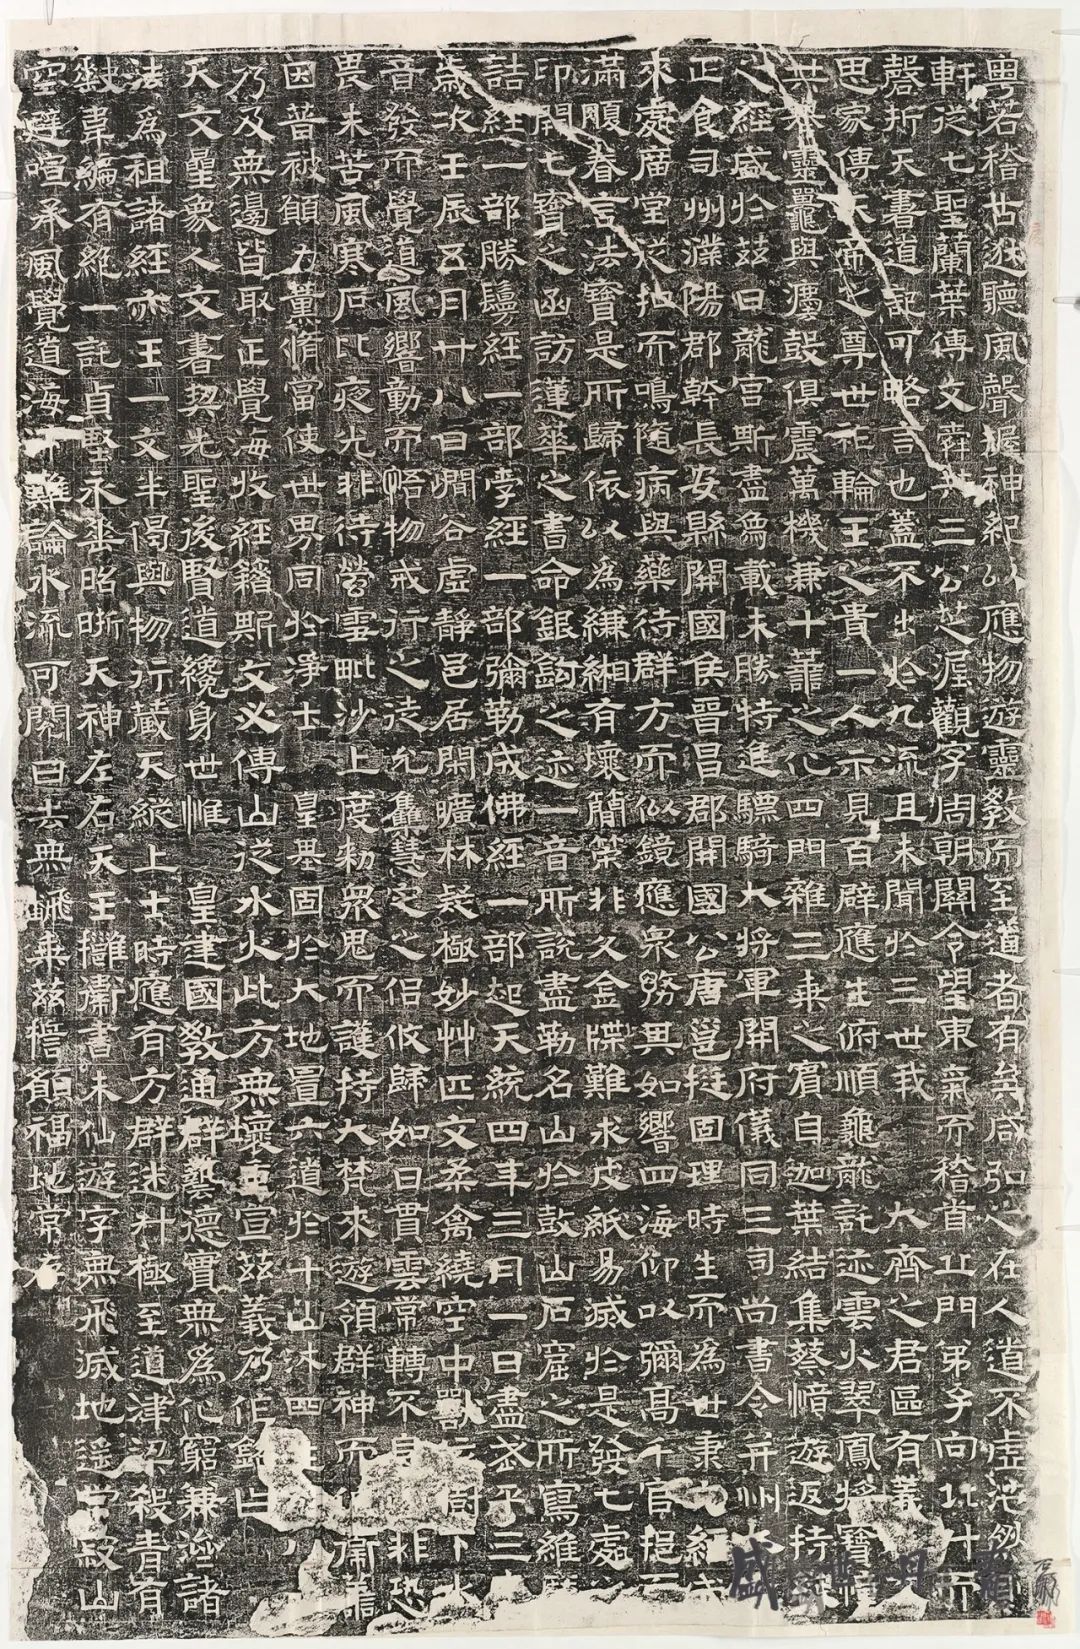 粤若稽古逖聽風聲握神紀以應物遊靈教而至道者有矣咸弘之在人道不虛
軒從七聖蘭葉傳文舜與三公芝渥觀字周朝關令望東氣而稽首丘門弟子向北斗而
磬折天書道記可略言也蓋不出於九流且未聞於三世我 大齊之君區有義
思家傳天帝之尊世祀輪王之貴一人示見百辟應生俯順龜龍託迹雲火翠鳳將寶
共 靈鼉與鷹鼓俱震萬機兼十善之心四門雜三乘之賓自迦葉結集蔡愔遊返持
之經盛於茲日龍宮斯盡鳥載未勝特進驃騎大將軍開府儀同三司尚書令并州大
正食司州濮陽郡幹長安縣開國侯晉昌郡開國公唐邕挺固理時生而為世秉
來處廣堂求扣而鳴隨病與藥待群方而似鏡應眾務其如響四海仰以彌高千官挹
滿顒眷言法寶是所歸依以為縑緗有壞簡策非久金牒難求皮紙易滅於是發七處
印開七寶之函訪蓮華之書命銀鉤之迹一音所說盡勒名山於鼓山石窟之所寫維
詰經一部勝鬘經一部孛經一部彌勒成佛經一部起天統四年三月一日盡武平三
歲次壬辰五月廿八日澗谷虛靜邑居閑曠林疑極妙艸匹文柔禽繞空中獸 樹下水
音發而覺道風響動而悟物戒行之徒允集慧定之侶攸歸如日貫雲常轉不息 非恐
畏末苦風寒石比夜光非待螢雪毗沙上度勅眾鬼而護持大梵來遊領群神而 齋講
因普被願力薰脩當使世界同於淨土 皇基固於大地置六道於十山沐四
乃及無邊皆取正覺海收經籍斯文必傳山從水火此方無壞 宣茲義乃作銘曰
天文鳥象人文書契先聖後賢道纔身世惟 皇建國教通群藝德實無為化窮兼濟諸
法為祖諸經亦王一文半偈與物行藏天縱上士時應有方群迷斗極至道津梁殺青有
缺韋編有絕一託貞堅永垂昭晰天神左右天王 衛書未仙遊字無飛滅地遥 寂山
空避喧承風覺道海 難論水流可閱日去無 乘茲誓願福地常在